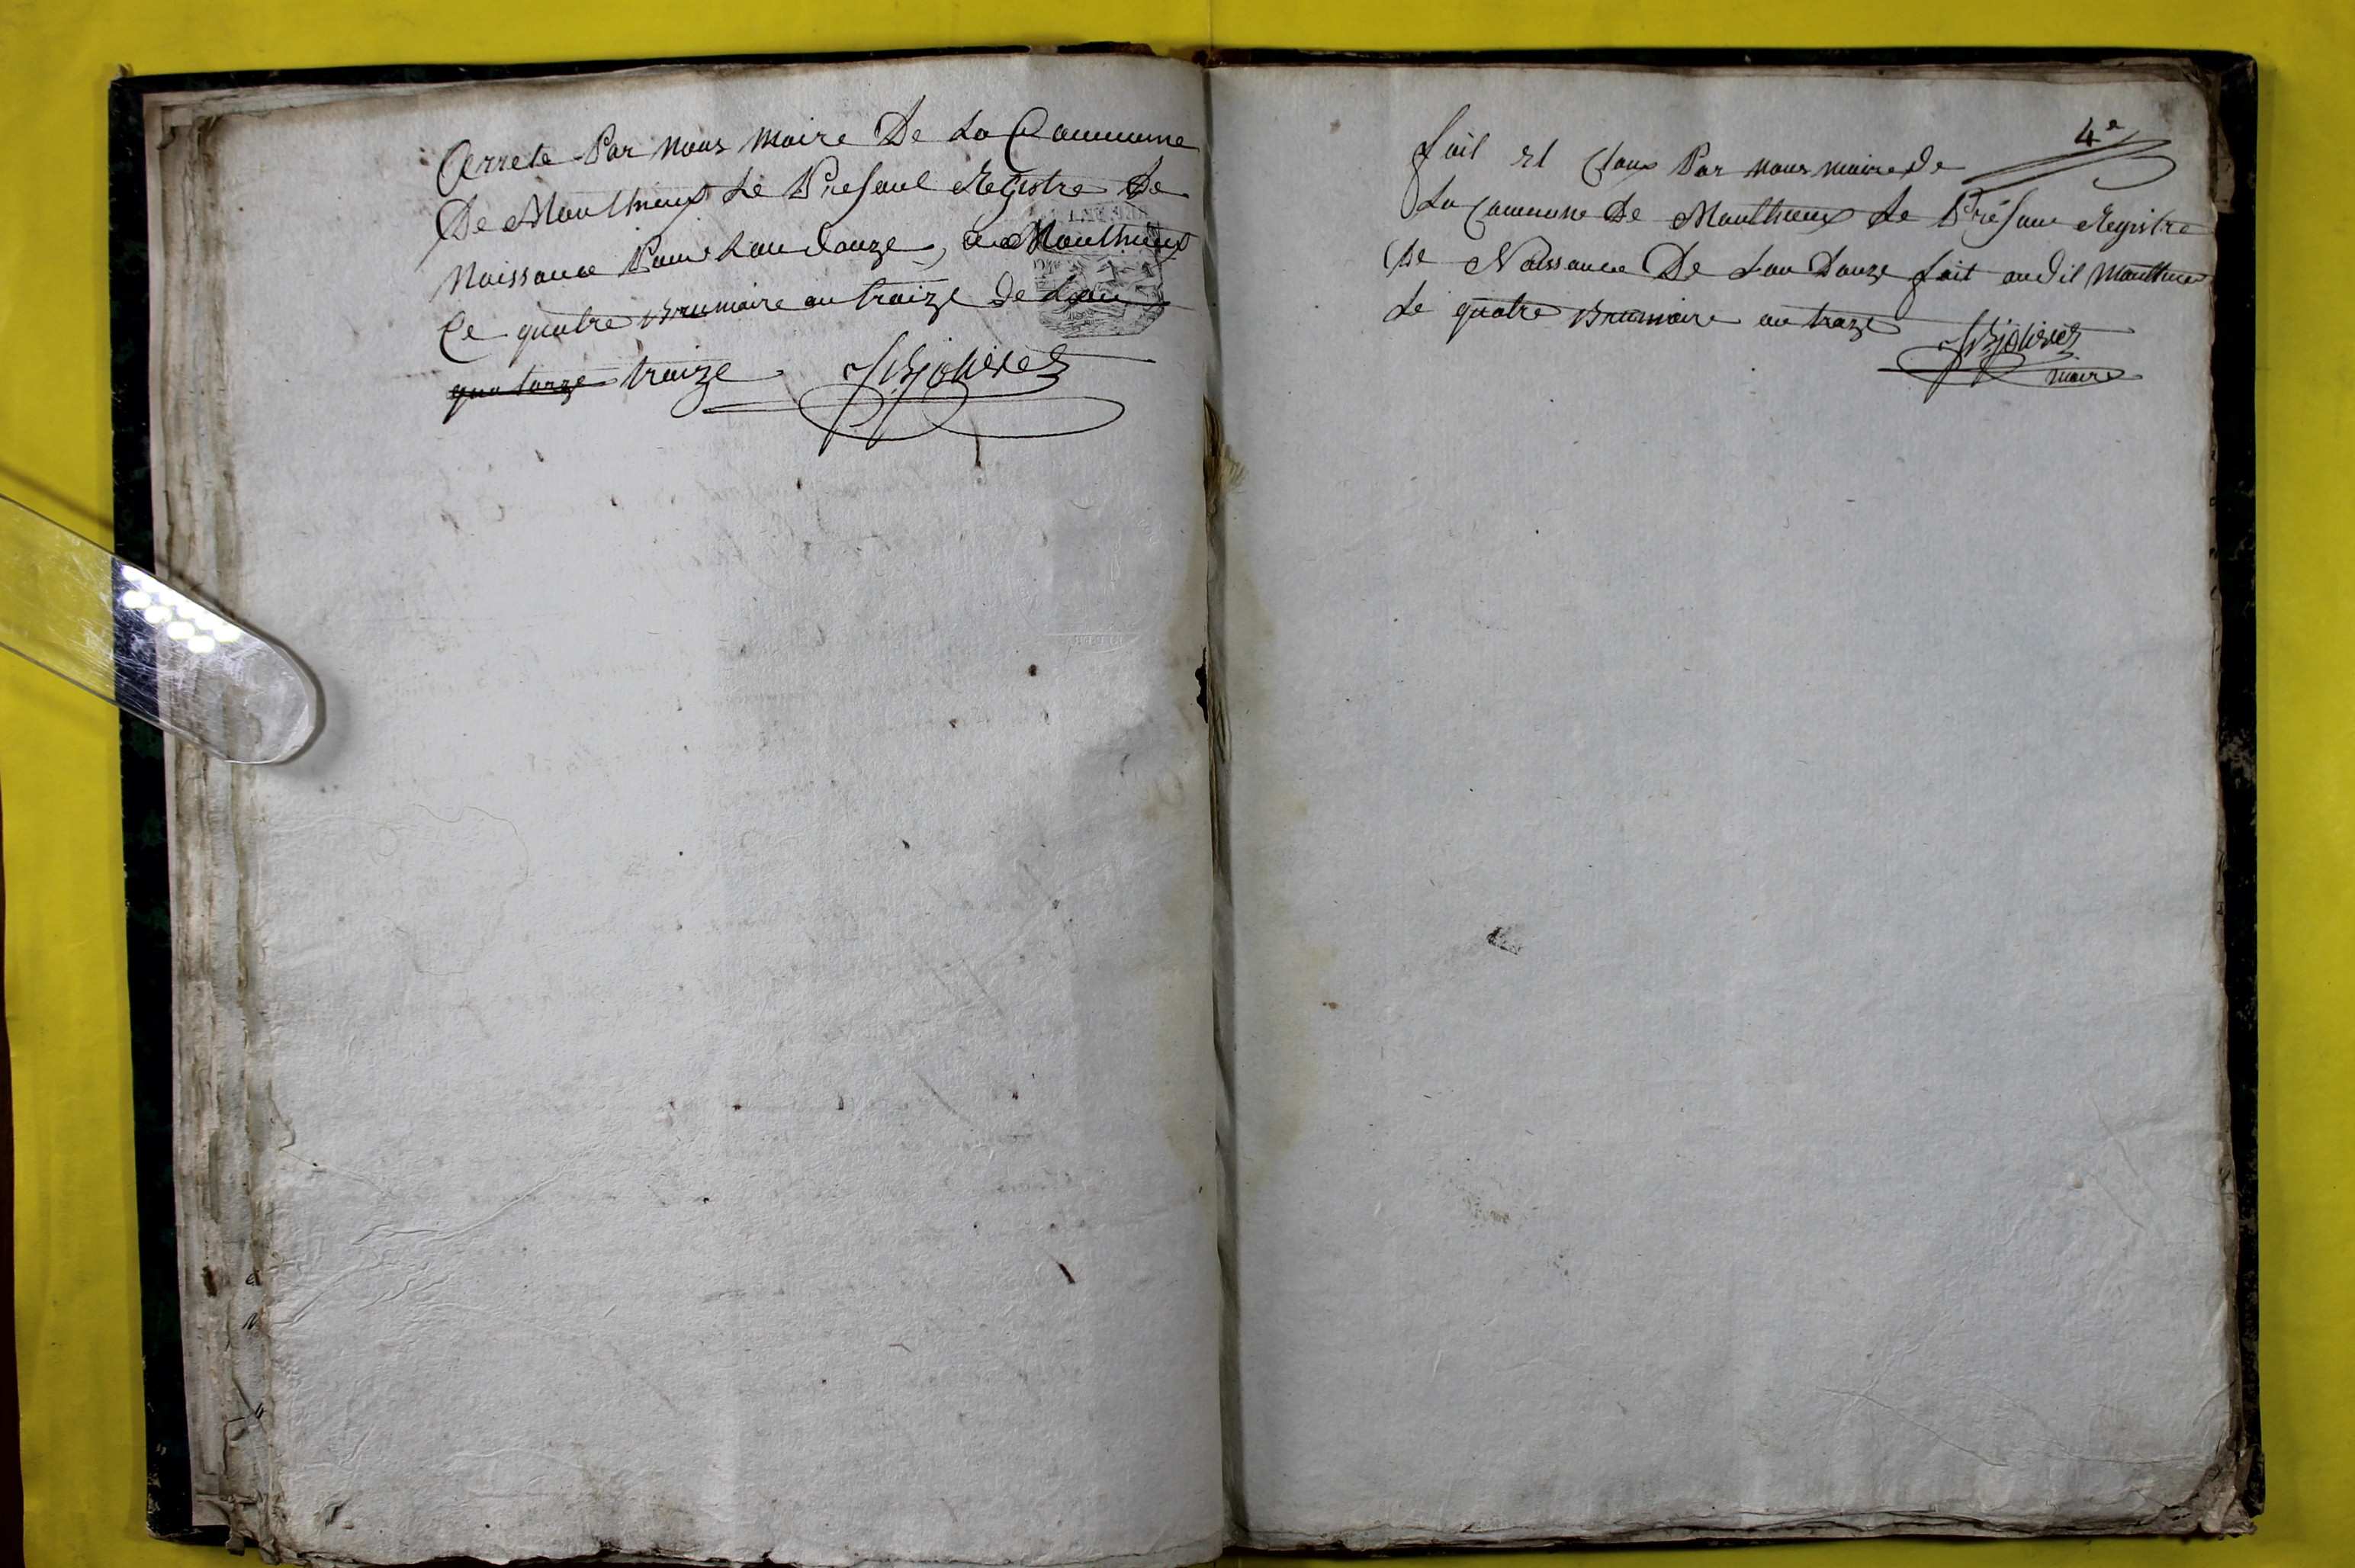 Arrete Par nous maire De La Commune
De Monthieux Le Presant Registre De
Naissance Pour Lan douze, a Monthieux
Ce quatre Brumaire an traize de Lan
quatorze traize
4e
fait et Claux Par nous maire de
La Commune De Monthieux Le Présant Registre
De Naissance De Lan Douze fait audit Monthieux
Le quatre Brumaire an traze
maire